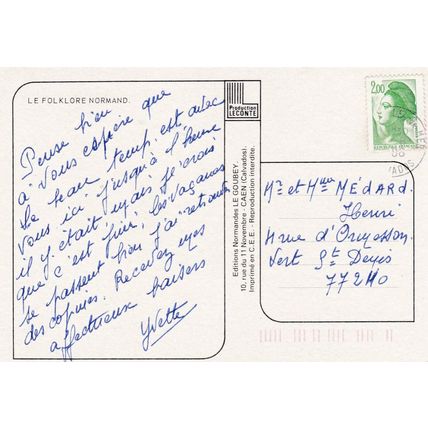 LE FOLKLORE NORMAND.
Pense bien
à vous espère que
le beau temps est avec
vous ici jusqu'à l'heure
il y était mais je crois
que c'est fini, les vacances
se passent bien j'ai retrouvé
des copines. Recevez mes
affectueux baisers
Yvette
Production
LECONTE
Editions Normandes LE GOUBEY
10, rue du 11 Novembre - CAEN (Calvados).
Imprimé en C.E.E. - Reproduction interdite.
2,00
Mr et Mme MÉDARD.
Henri
4 rue d'Ormesson
Vert St Denis
77240